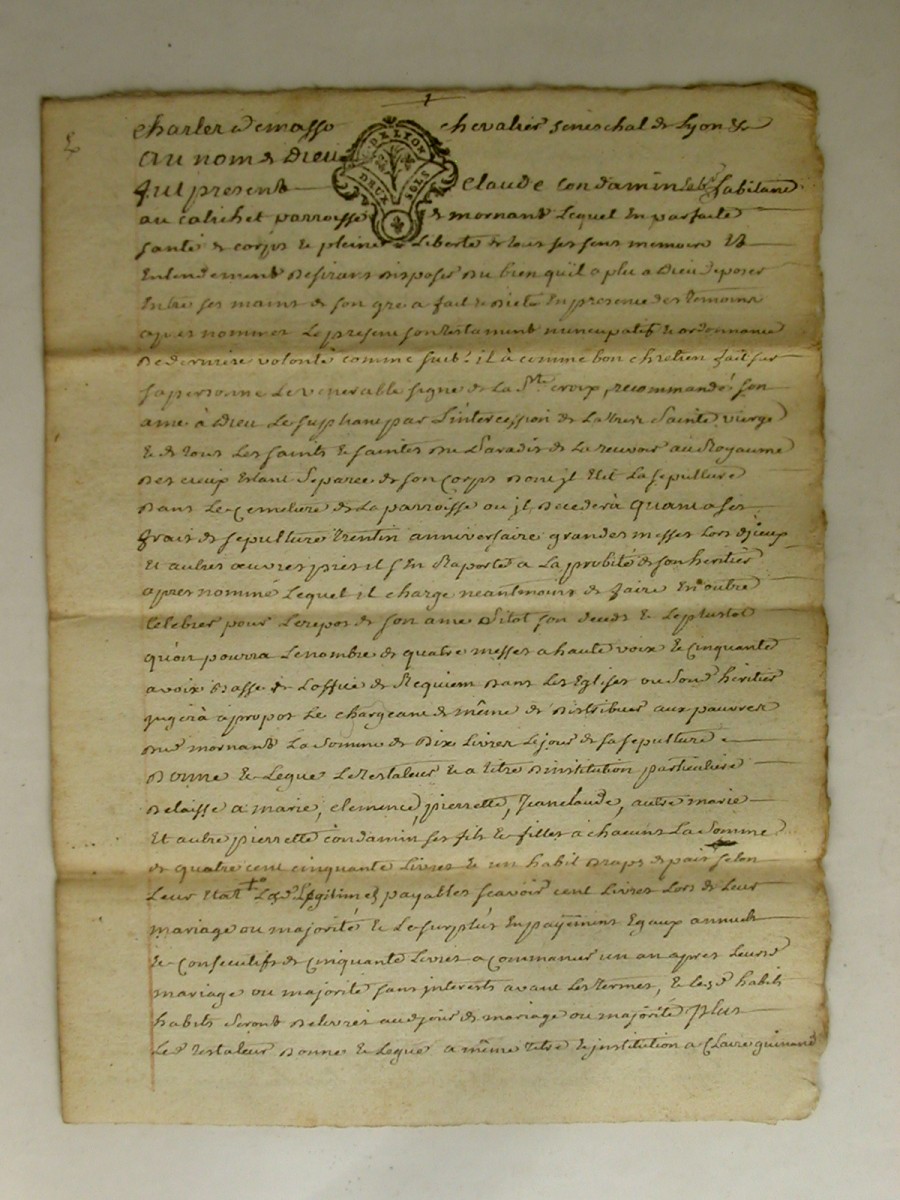 charles de masso chevalier seneschal de Lyon &c
DE LYON
DEUX SOLS
au nom de Dieu
fut present claude condamin habitant
au calichet parroisse de mornant Lequel En parfaite
santé de corps & pleine Liberté de tous ses sens memoire Et
Entendement desirant disposer du bien qu'il a plu a Dieu deposer
Entre ses mains de son gré a fait & dicté En presence des temoins
apres nommés Le present son testament nuncupatif & ordonnance
de derniere volonté comme suit. il à comme bon chretien fait sur
sa personne Le venerable signe de La Ste croix, recommandé son
ame à Dieu Le supliant par L'intercession de La tres Sainte vierge
& de tous Les saints & saintes du Paradis de La recevoir au Royaume
des cieux Etant Separée de son corps dont il Elit La sepulture
dans Le cemetiere de La parroisse ou il decederà quant a ses
frais de sepulture trentin anniversaire grandes messes Lors d'iceux
Et autres œuvres pies il s'En Raporte a La probité de son heritier
apres nommé Lequel il charge neantmoins de faire En outre
Celebrer pour Le repos de son ame sitot son decés & Le plustot
qu'on pourra Le nombre de quatre messes a haute voix & cinquante
a voix basse de L'office de Requiem dans Les Eglises ou Son heritier
jugerà apropos Le chargeant de même de distribuer aux pauvres
du mornant La Somme de Dix Livres Le jour de sa sepulture
donne & Legue Le testateur & a titre d'institution particuliere
delaisse a marie, clemence, pierrette, Jean claude, autre marie
Et autre pierrette condamin ses fils & filles à chacuns La Somme
de quatre cent cinquante Livres & un habit draps de pair selon
Leur Etat Legitimes payables scavoir cent Livres Lors de Leur
mariage ou majorité & Le surplus En payements Egaux annuels
& Consecutifs de cinquante Livres a Commancer un an apres Leurs
mariage ou majorité sans interets avant Les termes, & Les d. habits
habits Seront delivrés au d jour de mariage ou majorité plus
Le d. testateur donne & Legue a même titre d'institution a Claire guinand